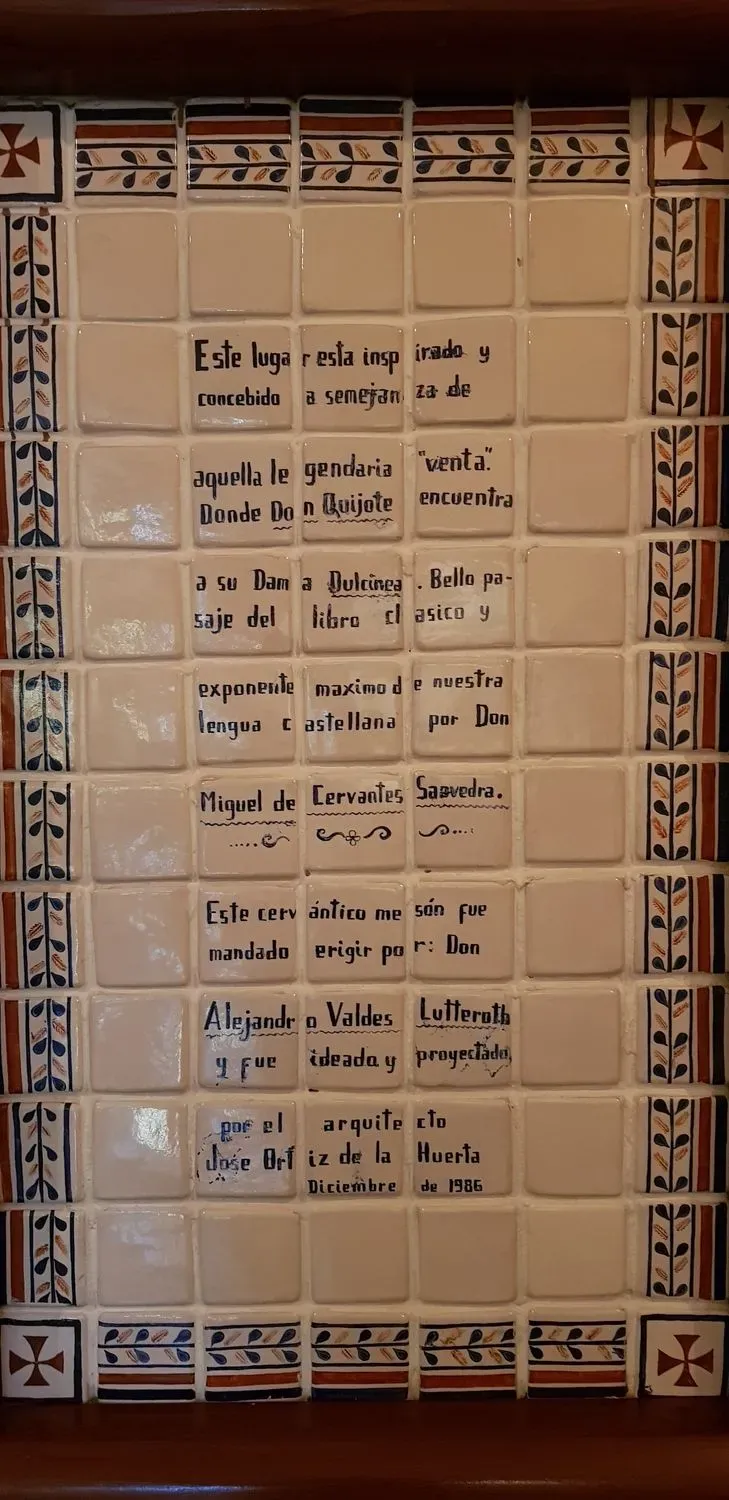 Este lugar esta inspirado y
concebido a semejanza de
aquella legendaria "venta."
Donde Don Quijote encuentra
a su Dama Dulcinea. Bello pa-
saje del libro clasico y
exponente maximo de nuestra
lengua castellana por Don
Miguel de Cervantes Saavedra.
Este cervántico mesón fue
mandado erigir por: Don
Alejandro Valdes Lutteroth
y fue ideada y proyectada,
por el arquitecto
Jose Ortiz de la Huerta
Diciembre de 1986